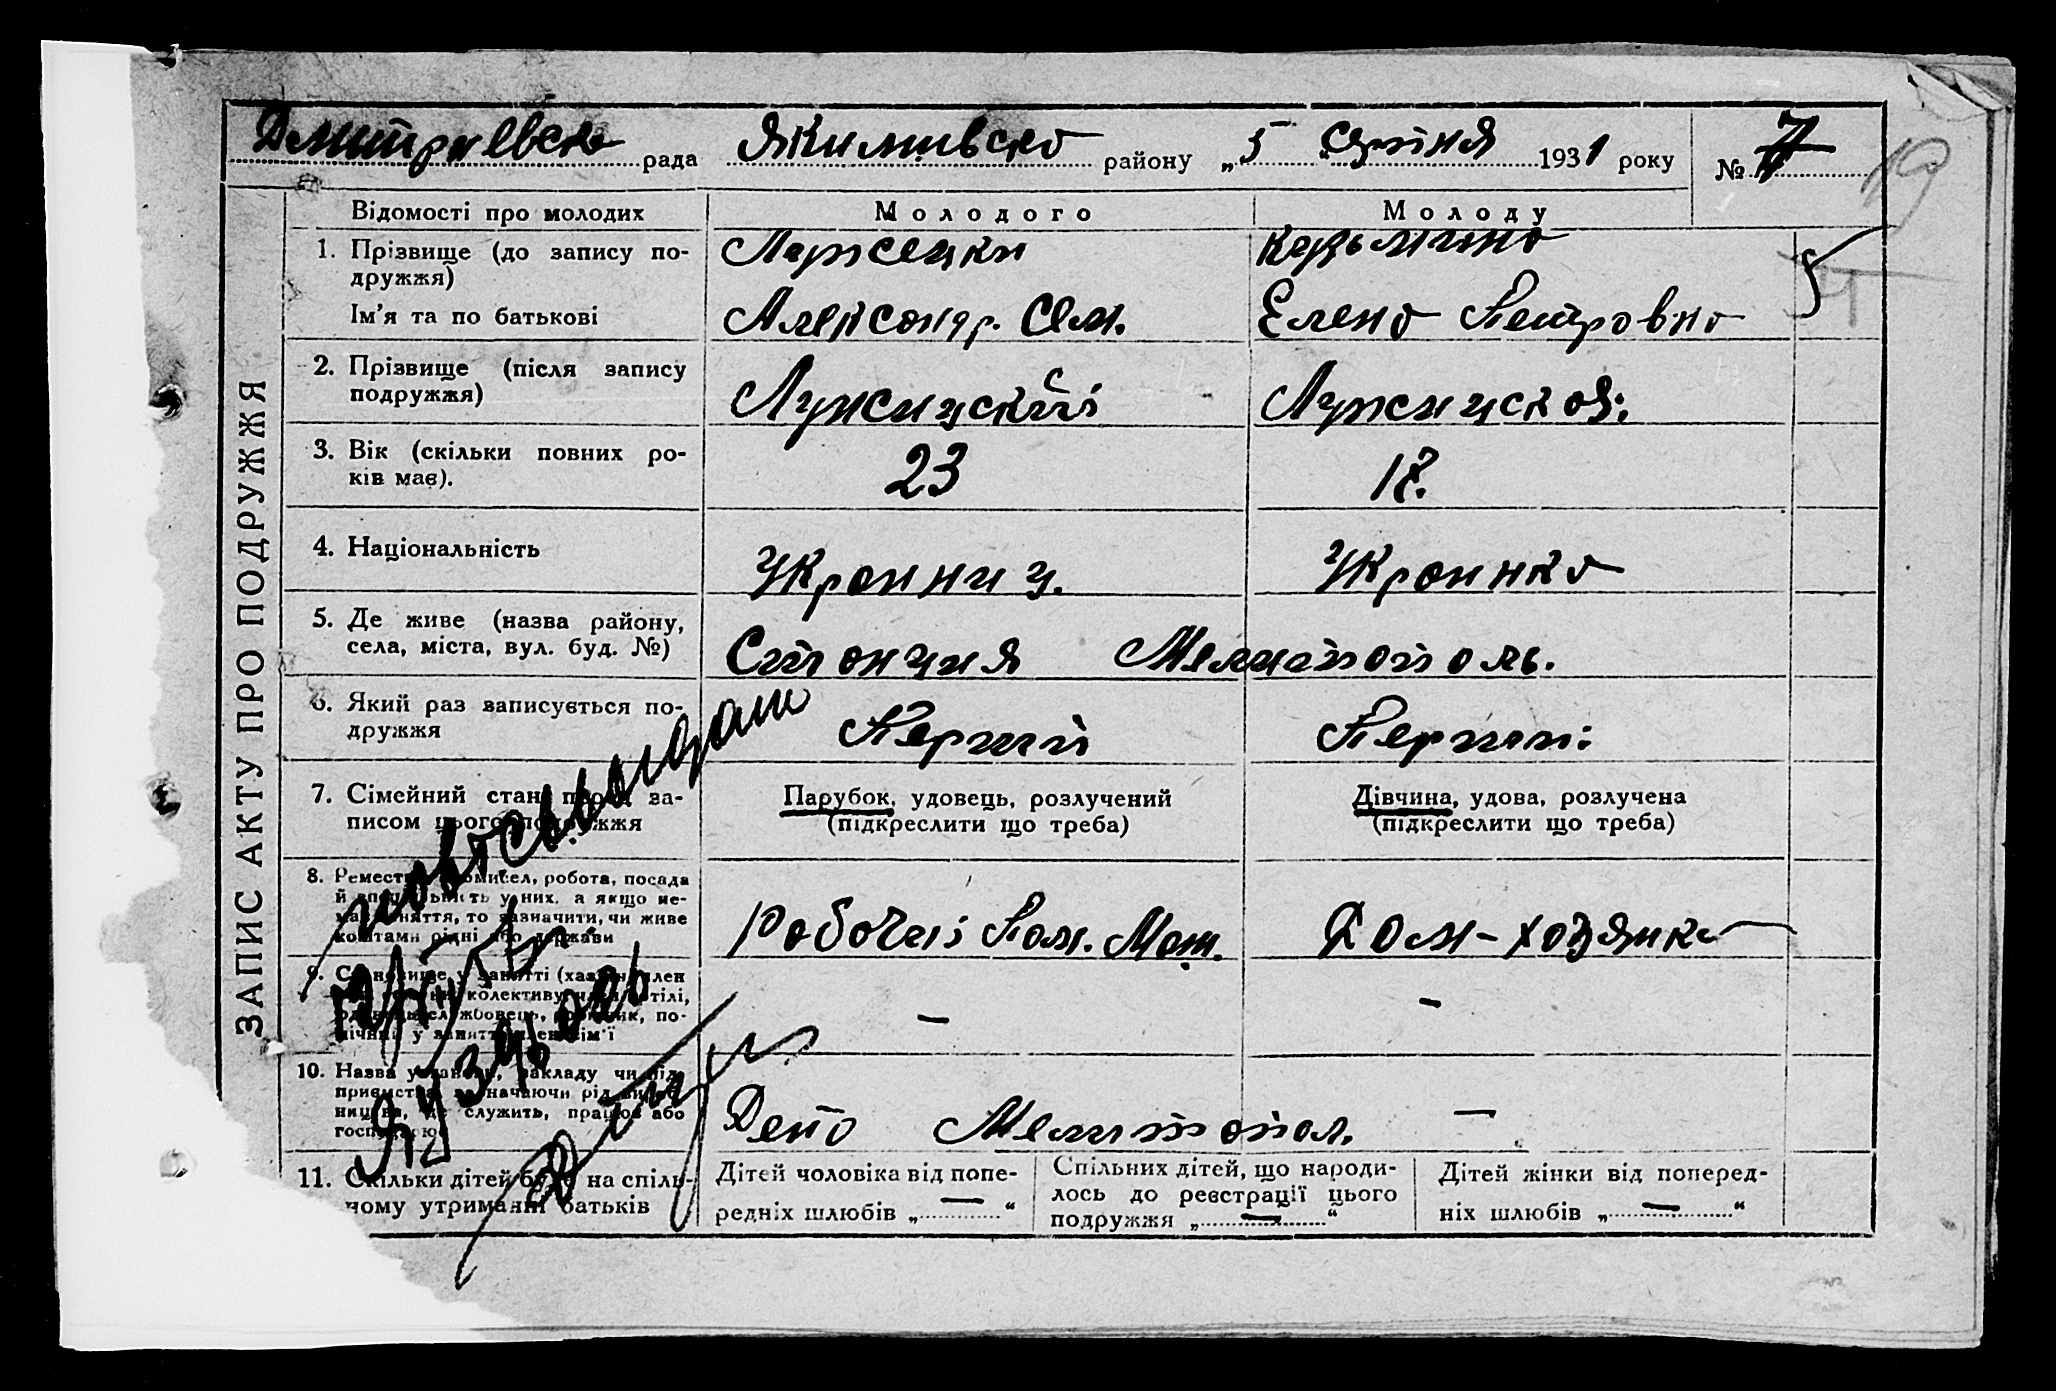 Дмитриевска рада Якимивско району „5 серпня 1931 року № 7
19
ЗАПИС АКТУ ПРО ПОДРУЖЖЯ
Відомості про молодих
Молодого
Молоду
1. Прізвище (до запису по-
дружжя)
Козьмино
Ім'я та по батькові
Александр. Сем.
Елено Петровно
2. Прізвище (після запису
подружжя)
Лужицский
Лужицскоя.
3. Вік (скільки повних ро-
ків має).
23
17.
4. Національність
Украиниц.
Украинка
5. Де живе (назва району,
села, міста, вул. буд. №)
Станция Мелитополь.
6. Який раз записується по-
дружжя
Перший
Перший
7. Сімейний стан перед за-
писом цього подружжя
Парубок, удовець, розлучений
(підкреслити що треба)
Дівчина, удова, розлучена
(підкреслити що треба)
8. Ремесло, промисел, робота, посада
й спеціальність у них, а якщо не-
має заняття, то зазначити, чи живе
коштами рідні або держави
Робочий Пом. Маш.
Дом-хозяйка
9. Становище у занятті
колективу
службовець, по-
у занятті член сім'ї
—
—
10. Назва установи, закладу чи під-
приємства, зазначаючи рід вироб-
ництва, де служить, працює або
господарює
Депо Мелитопол.
—
11. Скільки дітей буде на спіль-
ному утриманні батьків
Дітей чоловіка від попе-
редніх шлюбів „—“
Спільних дітей, що народи-
лось до реєстрації цього
подружжя „—“
Дітей жінки від поперед-
ніх шлюбів „—“